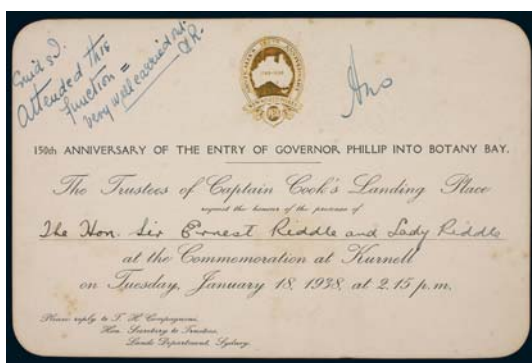 Enid & I
Attended this
function =
very well carried out.
Ans
150th ANNIVERSARY OF THE ENTRY OF GOVERNOR PHILLIP INTO BOTANY BAY.
The Trustees of Captain Cook's Landing Place
request the honour of the presence of
The Hon. Sir Ernest Riddle and Lady Riddle
at the Commemoration at Kurnell
on Tuesday, January 18, 1938, at 2.15 p.m.
Please reply to
Hon. Secretary to Trustees,
Lands Department, Sydney.